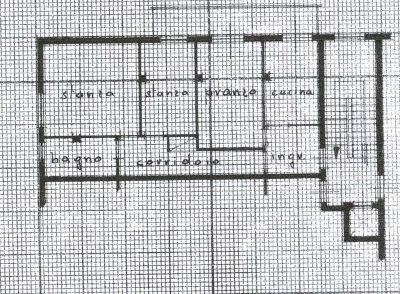 stanza stanza pranzo cucina
bagno corridoio ingr.